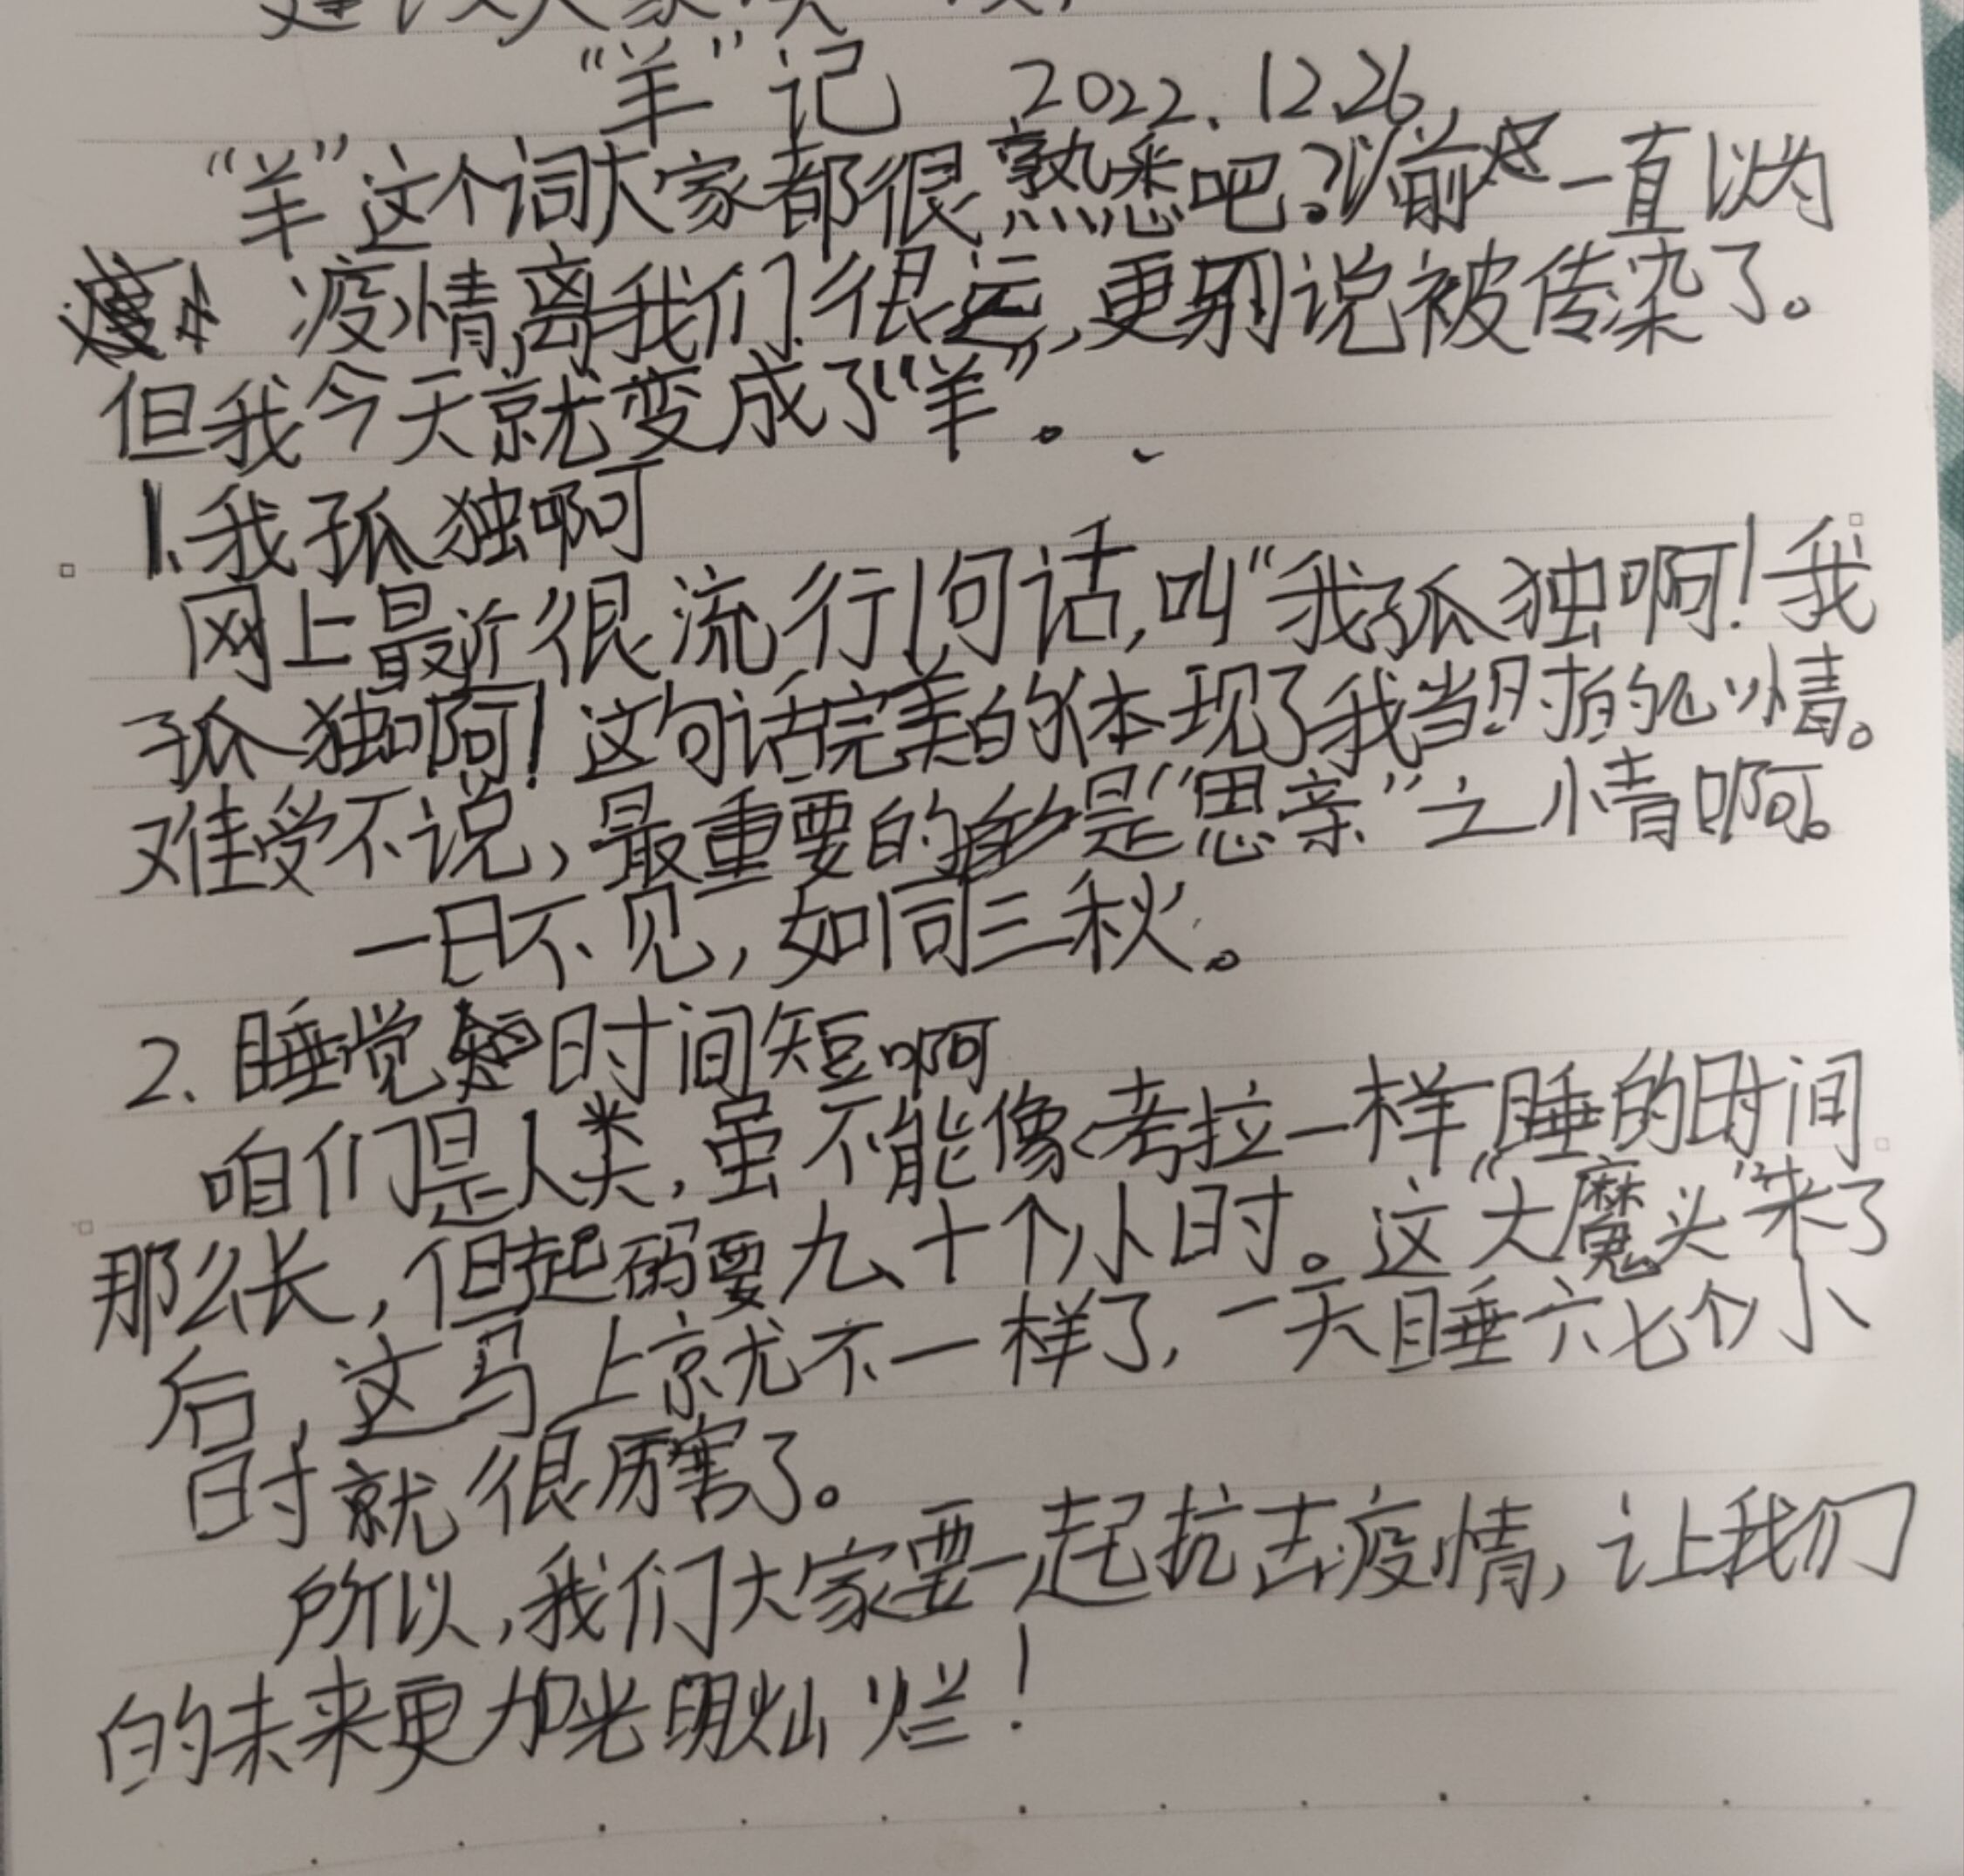 “羊”记 2022.12.26
“羊”这个词大家都很熟悉吧?以前一直以为
疫情离我们很远,更别说被传染了。
但我今天就变成了“羊”。
1.我孤独啊
网上最近很流行1句话,叫“我孤独啊!我
孤独啊!这句话完美的体现了我当时的心情。
难受不说,最重要的是“思亲”之情啊。
一日不见,如同三秋。
2.睡觉时间短啊
咱们是人类,虽不能像考拉一样睡的时间
那么长,但起码要九、十个小时。这“大魔头”来了
后,这马上就不一样了,一天睡六七个小
时就很厉害了。
所以,我们大家要一起抗击疫情,让我们
的未来更加光明灿烂!